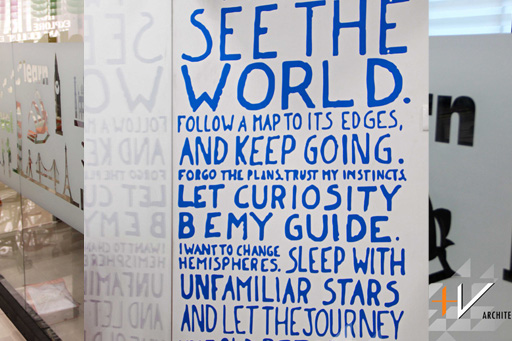 SEE THE
WORLD.
FOLLOW A MAP TO ITS EDGES,
AND KEEP GOING.
FORGO THE PLANS. TRUST MY INSTINCTS.
LET CURIOSITY
BE MY GUIDE.
I WANT TO CHANGE
HEMISPHERES. SLEEP WITH
UNFAMILIAR STARS
AND LET THE JOURNEY
learn
rn
+V
ARCHITE